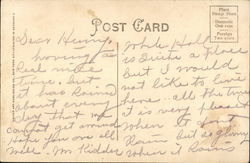 POST CARD
Place
Stamp Here
Domestic
One cent
Foreign
Two cents
Dear Henry,
having a
Real nice
time, but
it has Rained
about every
day that we
cannot get around
Hope you are all
well. - Mr Kidder
While Holl
is Quite a Place
but I would
not like to live
here all the time
it is very pleasant
When it dont
Rain but as gloomy
When it Rains